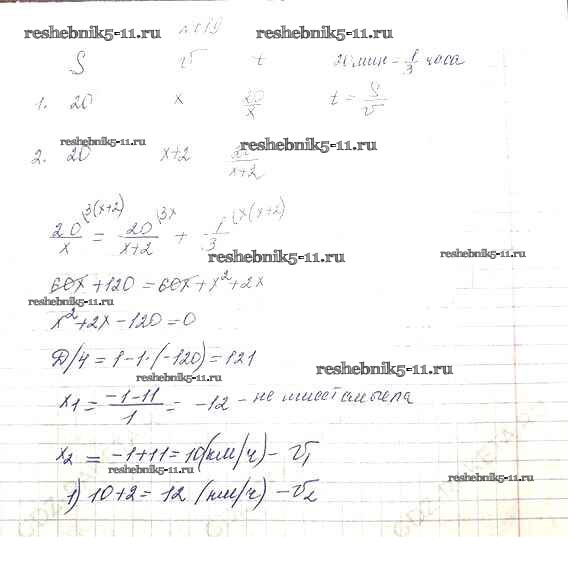 reshebnik5-11.ru reshebnik5-11.ru
S v t 20 мин = 1/3 часа
1. 20 x 20/x t = S/v
reshebnik5-11.ru reshebnik5-11.ru
2. 20 x+2 20/(x+2)
20/x \3(x+2) = 20/(x+2) \3x + 1/3 \x(x+2)
reshebnik5-11.ru reshebnik5-11.ru
60x + 120 = 60x + x² + 2x
reshebnik5-11.ru
x² + 2x - 120 = 0
Д/4 = 1 - 1·(-120) = 121
reshebnik5-11.ru reshebnik5-11.ru
x1 = (-1-11)/1 = -12 - не имеет смысла
x2 = -1+11 = 10(км/ч) - v1
reshebnik5-11.ru reshebnik5-11.ru
1) 10+2 = 12 (км/ч) - v2